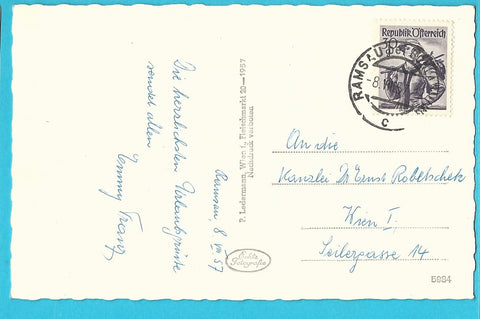 Ramsau, 8 VIII 57
Die herzlichsten Urlaubsgrüsse
sendet allen
P. Ledermann, Wien I., Fleischmarkt 20 — 1957
Nachdruck verboten
Echte
Fotografie
Republik Österreich
RAMSAU
C
An die
Kanzlei Dr Ernst Robetschek
Wien I.
Seilergasse 14
5984